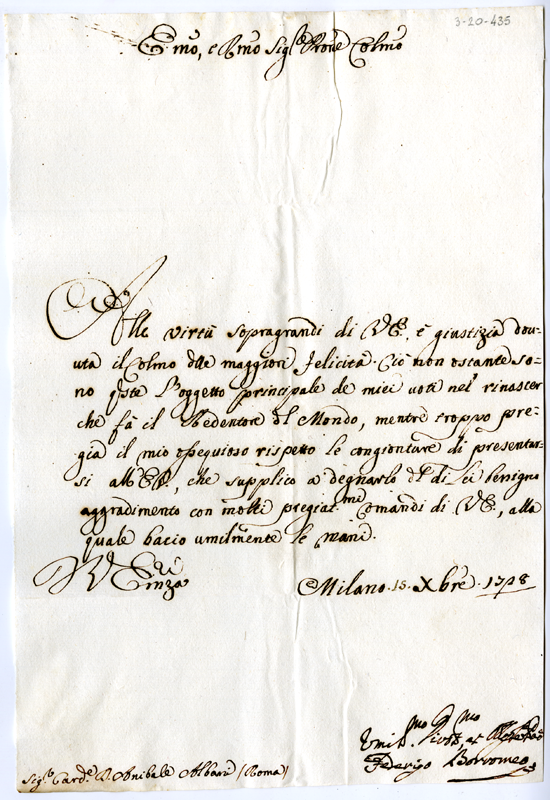 3-20-435
Emo, e Rmo Sigre Prone Colmo
Alle virtù sopragrandi di V.E. è giustizia dou-
uta il Colmo dlle maggiori felicità. Ciò non ostante so-
no qste l'oggetto principale de miei voti nel rinascer
che fà il Redentore dl Mondo, mentre troppo pre-
gia il mio ossequioso rispetto le congionture di presentar-
si all'E.V., che supplico a degnarlo dl di Lei benigno
aggradimento con molti pregiatmi Comandi di V.E., alla
quale bacio umilmente le mani.
Milano. 15. Xbre. 1718
Umilmo Devmo
Federigo Borromeo
Sigr Carde D. Anibale Albani (Roma)